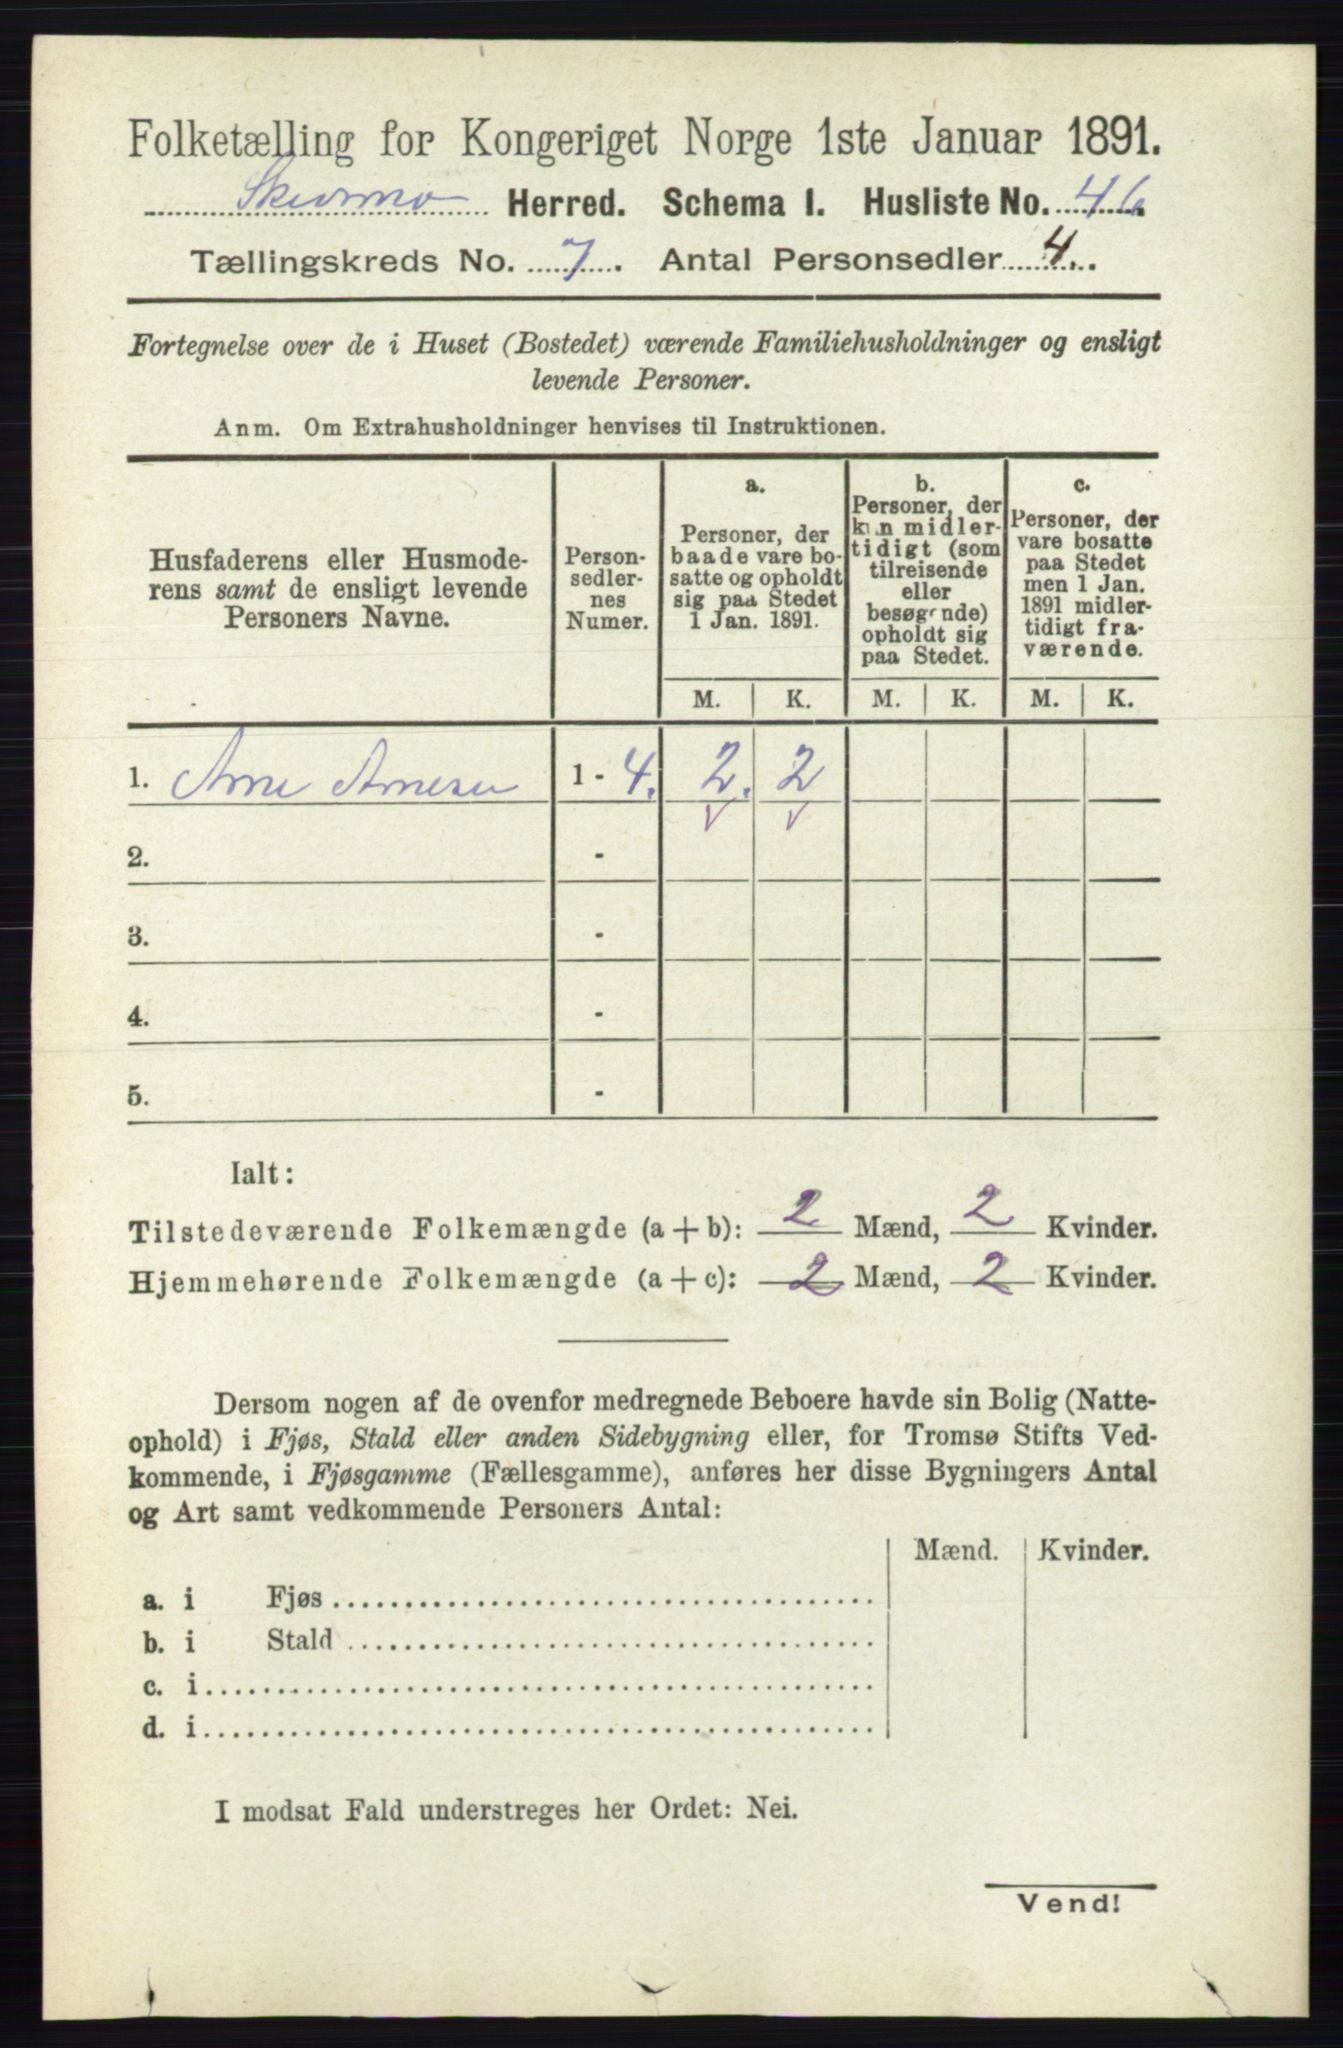 Folketælling for Kongeriget Norge 1ste Januar 1891.
Skedsmo Herred. Schema I. Husliste No. 46
Tællingskreds No. 7. Antal Personsedler 4.
Fortegnelse over de i Huset (Bostedet) værende Familiehusholdninger og ensligt
levende Personer.
Anm. Om Extrahusholdninger henvises til Instruktionen.
Husfaderens eller Husmode-
rens samt de ensligt levende
Personers Navne.
Person-
sedler-
nes
Numer.
a.
Personer, der
baade vare bo-
satte og opholdt
sig paa Stedet
1 Jan. 1891.
b.
Personer, der
kun midler-
tidigt (som
tilreisende
eller
besøgende)
opholdt sig
paa Stedet.
c.
Personer, der
vare bosatte
paa Stedet
men 1 Jan.
1891 midler-
tidigt fra-
værende.
M. K. M. K. M. K.
1. Arne Arnesen 1 - 4. 2. 2
2. -
3. -
4. -
5. -
Ialt:
Tilstedeværende Folkemængde (a + b): 2 Mænd, 2 Kvinder.
Hjemmehørende Folkemængde (a + c): 2 Mænd, 2 Kvinder.
Dersom nogen af de ovenfor medregnede Beboere havde sin Bolig (Natte-
ophold) i Fjøs, Stald eller anden Sidebygning eller, for Tromsø Stifts Ved-
kommende, i Fjøsgamme (Fællesgamme), anføres her disse Bygningers Antal
og Art samt vedkommende Personers Antal:
Mænd. Kvinder.
a. i Fjøs
b. i Stald
c. i
d. i
I modsat Fald understreges her Ordet: Nei.
Vend!